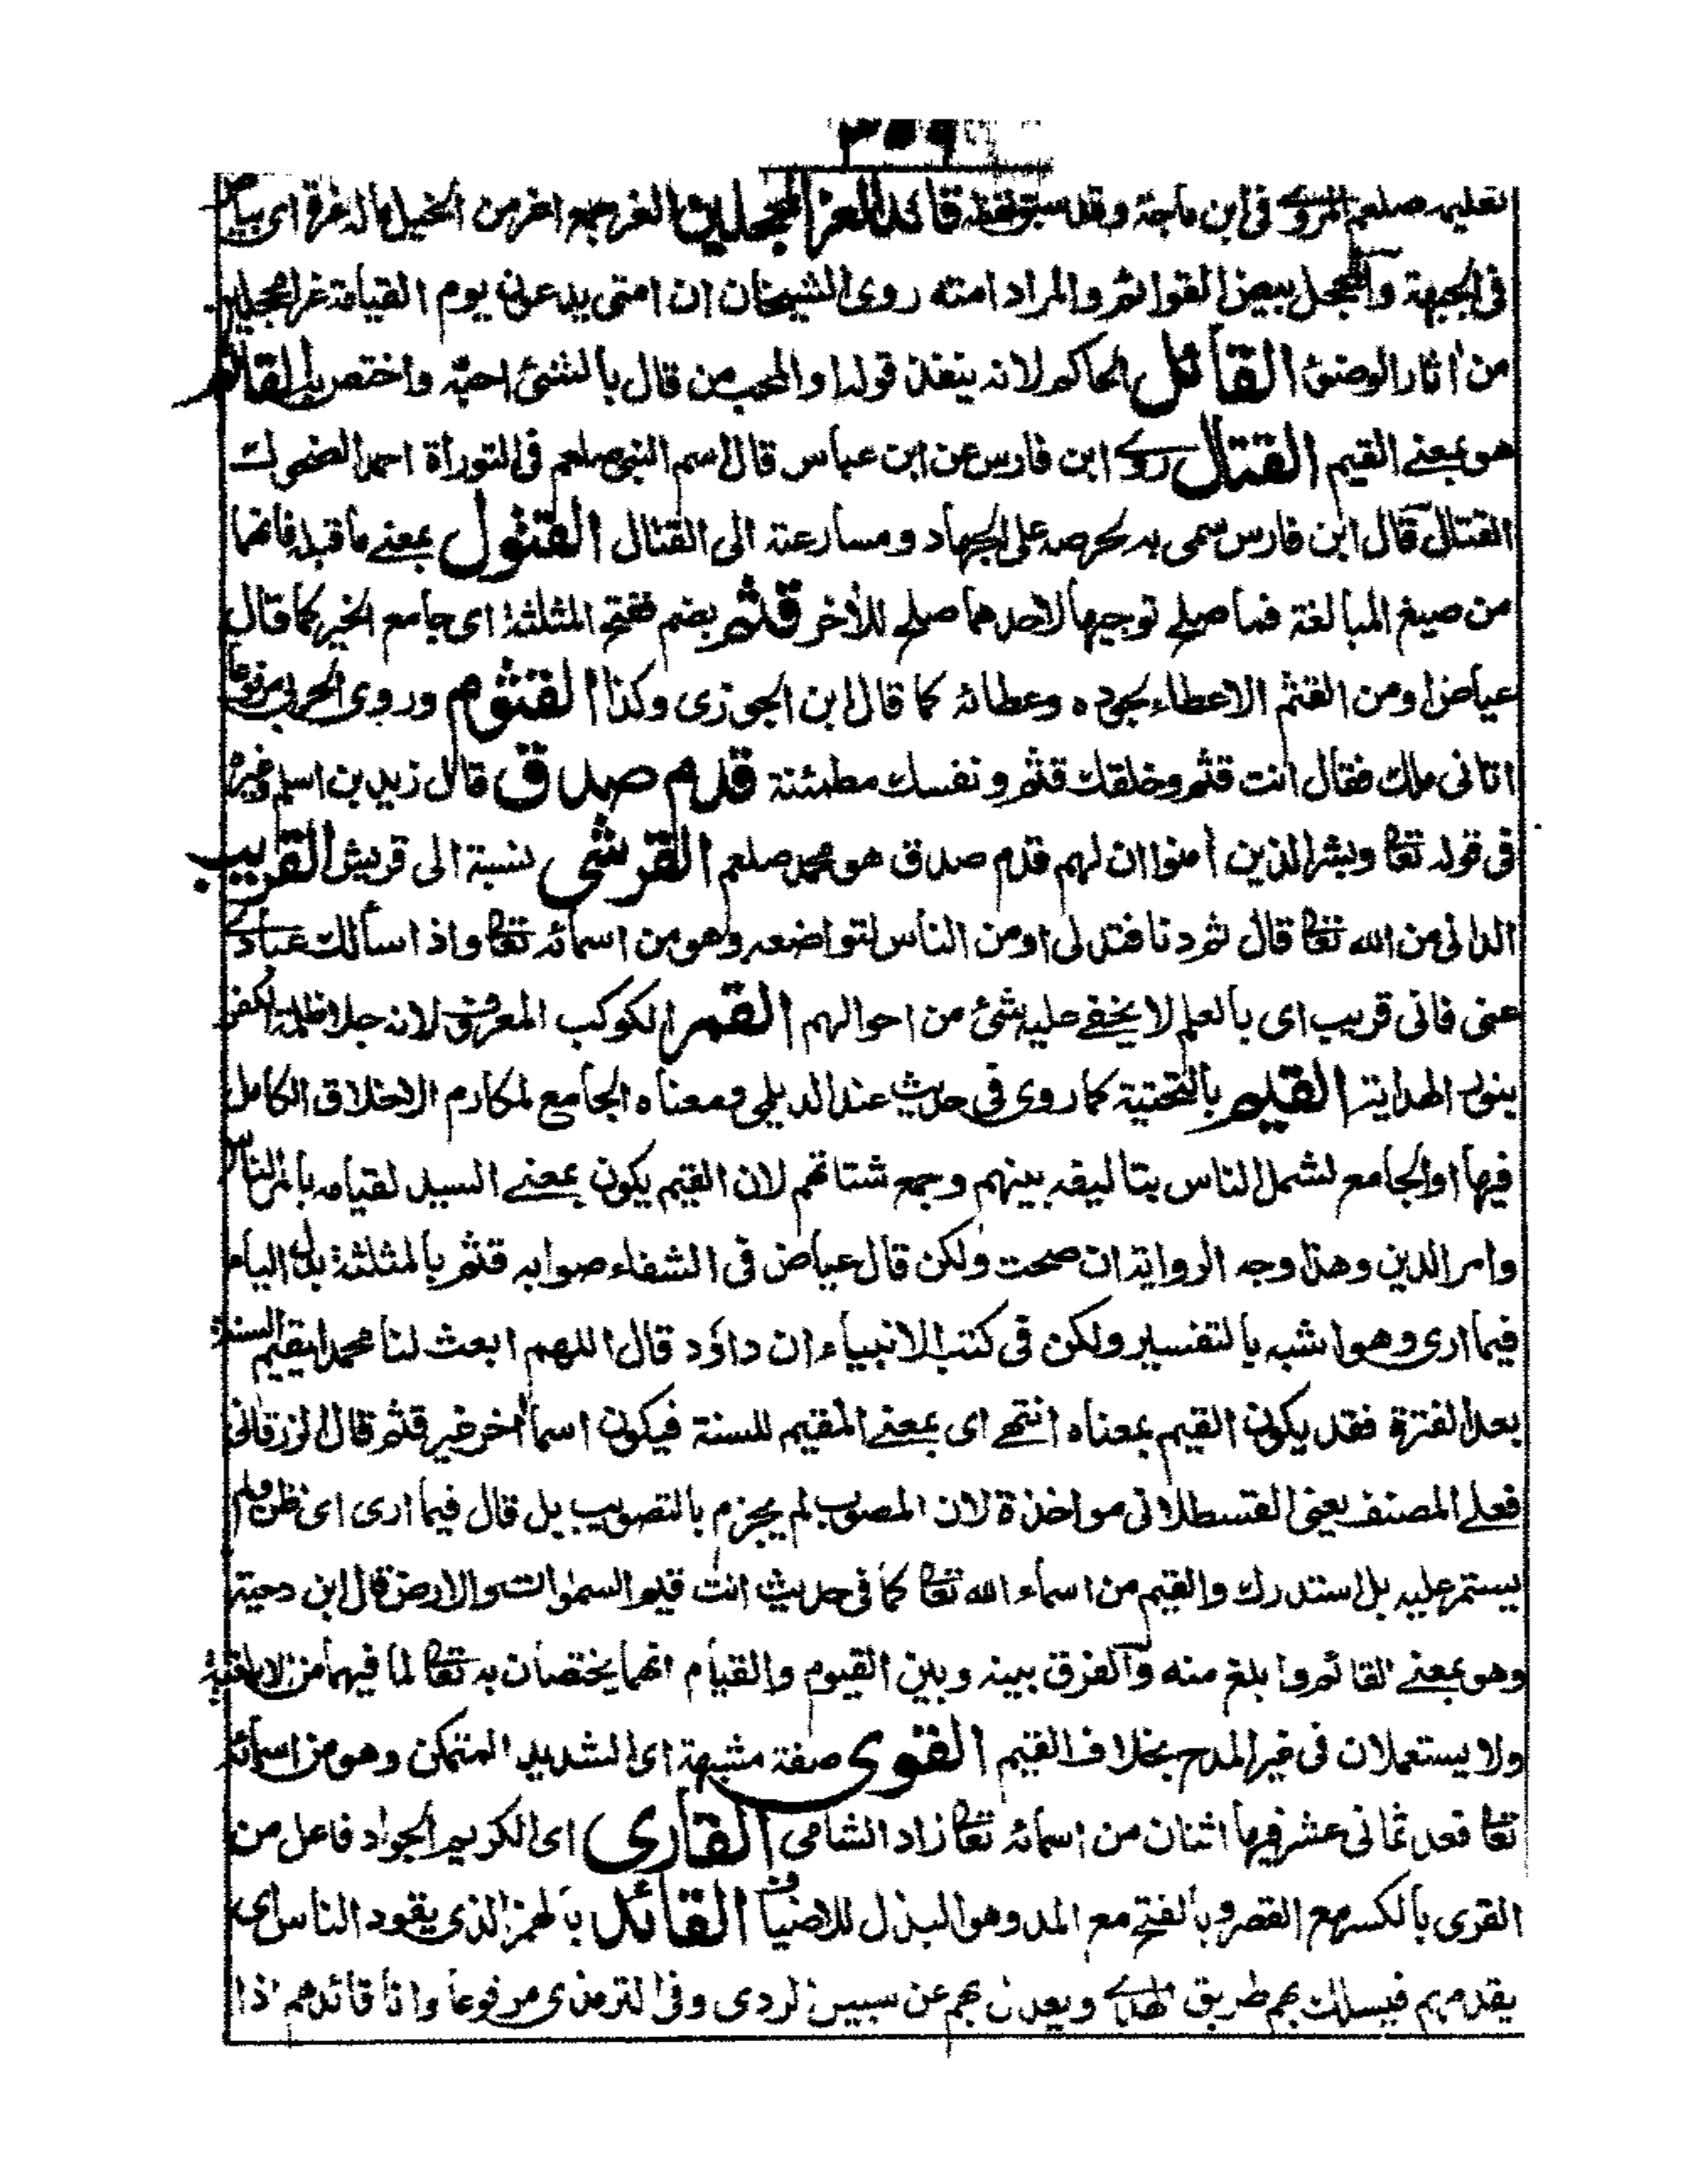 ٣٥٩
تعليمه صلعم المروى فى ابن ماجة وقد سبق لفظه قائد الغر المحجلين الغر جمع اغر من الخيل ماله غرة اى بياض
فى الجبهة والمحجل ببيض القوائم والمراد امته روى الشيخان ان امتى يدعون يوم القيامة غرا محجلين
من اثار الوضوئ القائل الحاكم لانه ينفذ قوله او المحب من قال بالشئ احبّه واختص به القائم
هو بمعنے القيم القتال روے ابن فارس عن ابن عباس قال اسم النبى صلعم فى التوراة احمد الضحوك
القتال قال ابن فارس سمى به لحرصه على الجهاد ومسارعته الى القتال القتول بمعنے ما قبله فانهما
من صيغ المبالغة فما صلح توجيها لاحدهما صلح للأخر قثم بضم ففتح المثلثة اى جامع الخير كما قال
عياض او من القثم الاعطاء لجوده وعطائه كما قال ابن الجوزى وكذا القثوم وروى الحربى مرفوعا
اتانى ملك فقال انت قثم وخلقك قثم ونفسك مطمئنة قدم صدق قال زيد بن اسلم وغيره
فى قوله تعا وبشر الذين أمنوا ان لهم قدم صدق هو محمد صلعم القرشى نسبة الى قريش القريب
الدانى من الله تعا قال ثم دنا فتدلى او من الناس لتواضعه وهو من اسمائه تعا واذا سألك عبادے
عنى فانى قريب اى بالعلم لا يخفے عليه شئ من احوالهم القمر الكوكب المعروف لانه جلا ظلمة الكفر
بنور الهداية القيم بالتحتية كما روى فى حديث عند الديلمى ومعناه الجامع لمكارم الاخلاق الكامل
فيها او الجامع لشمل الناس بتاليفه بينهم وجمع شتاتهم لان القيم يكون بمعنے السيد لقيامه بامر الناس
وامر الدين وهذا وجه الرواية ان صحت ولكن قال عياض فى الشفاء صوابه قثم بالمثلثة بدل الياء
فيما ارى وهو اشبه بالتفسير ولكن فى كتب الانبياء ان داؤد قال اللهم ابعث لنا محمدا يقيم السنة
بعد الفترة فقد يكون القيم بمعناه انتهے اى بمعنے المقيم للسنة فيكون اسما أخر غير قثم قال الزرقانى
فعلے المصنف يعنى القسطلانى مواخذة لان المصوب لم يجزم بالتصويب بل قال فيما ارى اى ظن ولم
يستمر عليه بل استدرك والقيم من اسماء الله تعا كما فى حديث انت قيم السموات والارض قال ابن دحية
وهو بمعنے القائم وابلغ منه والفرق بينه وبين القيوم والقيام انهما يختصان به تعا لما فيهما من الابلغية
ولا يستعملان فى غير المدح بخلاف القيم القوى صفة مشبهة اى الشديد المتمكن وهو من اسمائه
تعا فعد ثمانى عشر فيها اثنان من اسمائه تعا زاد الشامى القارى اى الكريم الجواد فاعل من
القرى بالكسر مع القصر وبالفتح مع المد وهو البذل للاضياف القائد بالهمز الذى يقود الناس اى
يقدمهم فيسلك بهم طريق الهدے ويعدل بهم عن سبيل الردى وفى الترمذى مرفوعا وانا قائدهم اذا